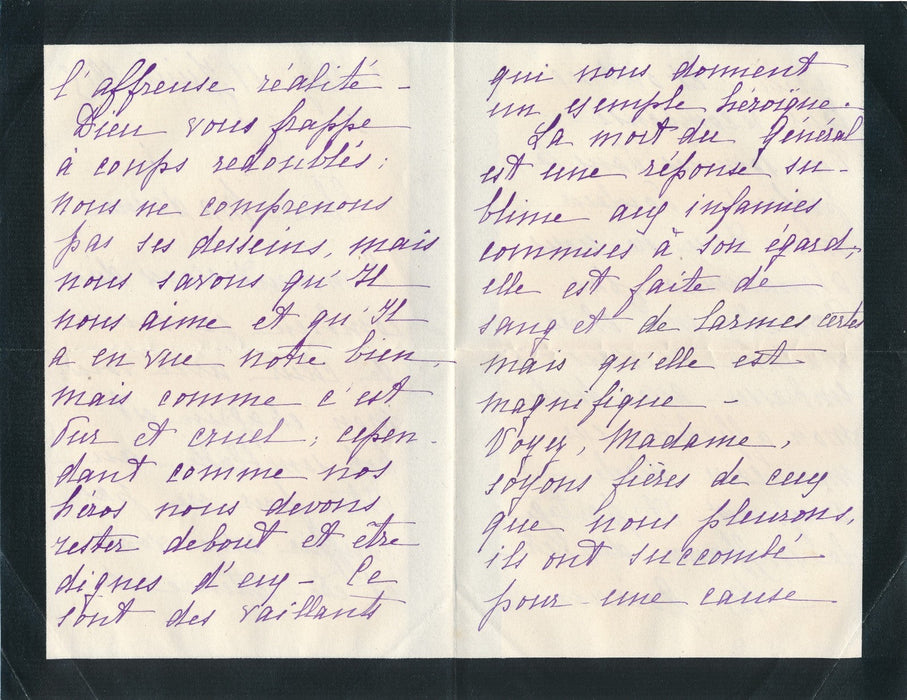 l'affreuse réalité -
Dieu vous frappe
à coups redoublés ;
nous ne comprenons
pas ses desseins, mais
nous savons qu'Il
nous aime et qu'Il
a en vue notre bien,
mais comme c'est
dur et cruel ; cepen-
dant comme nos
héros nous devons
rester debout et être
dignes d'eux - Ce
sont des vaillants
qui nous donnent
un exemple héroïque.
La mort du Général
est une réponse su-
blime aux infamies
commises à son égard,
elle est faite de
sang et de larmes certes
mais qu'elle est
magnifique -
Voyez, Madame,
soyons fières de ceux
que nous pleurons,
ils ont succombé
pour une cause